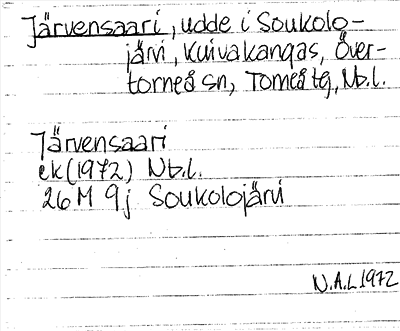 Järvensaari, udde i Soukolo-
järvi, Kuivakangas, Över-
torneå sn, Torneå tg, Nb.l.
Järvensaari
ek (1972) Nb.l.
26 M 9j Soukolojärvi
N.A.L 1972